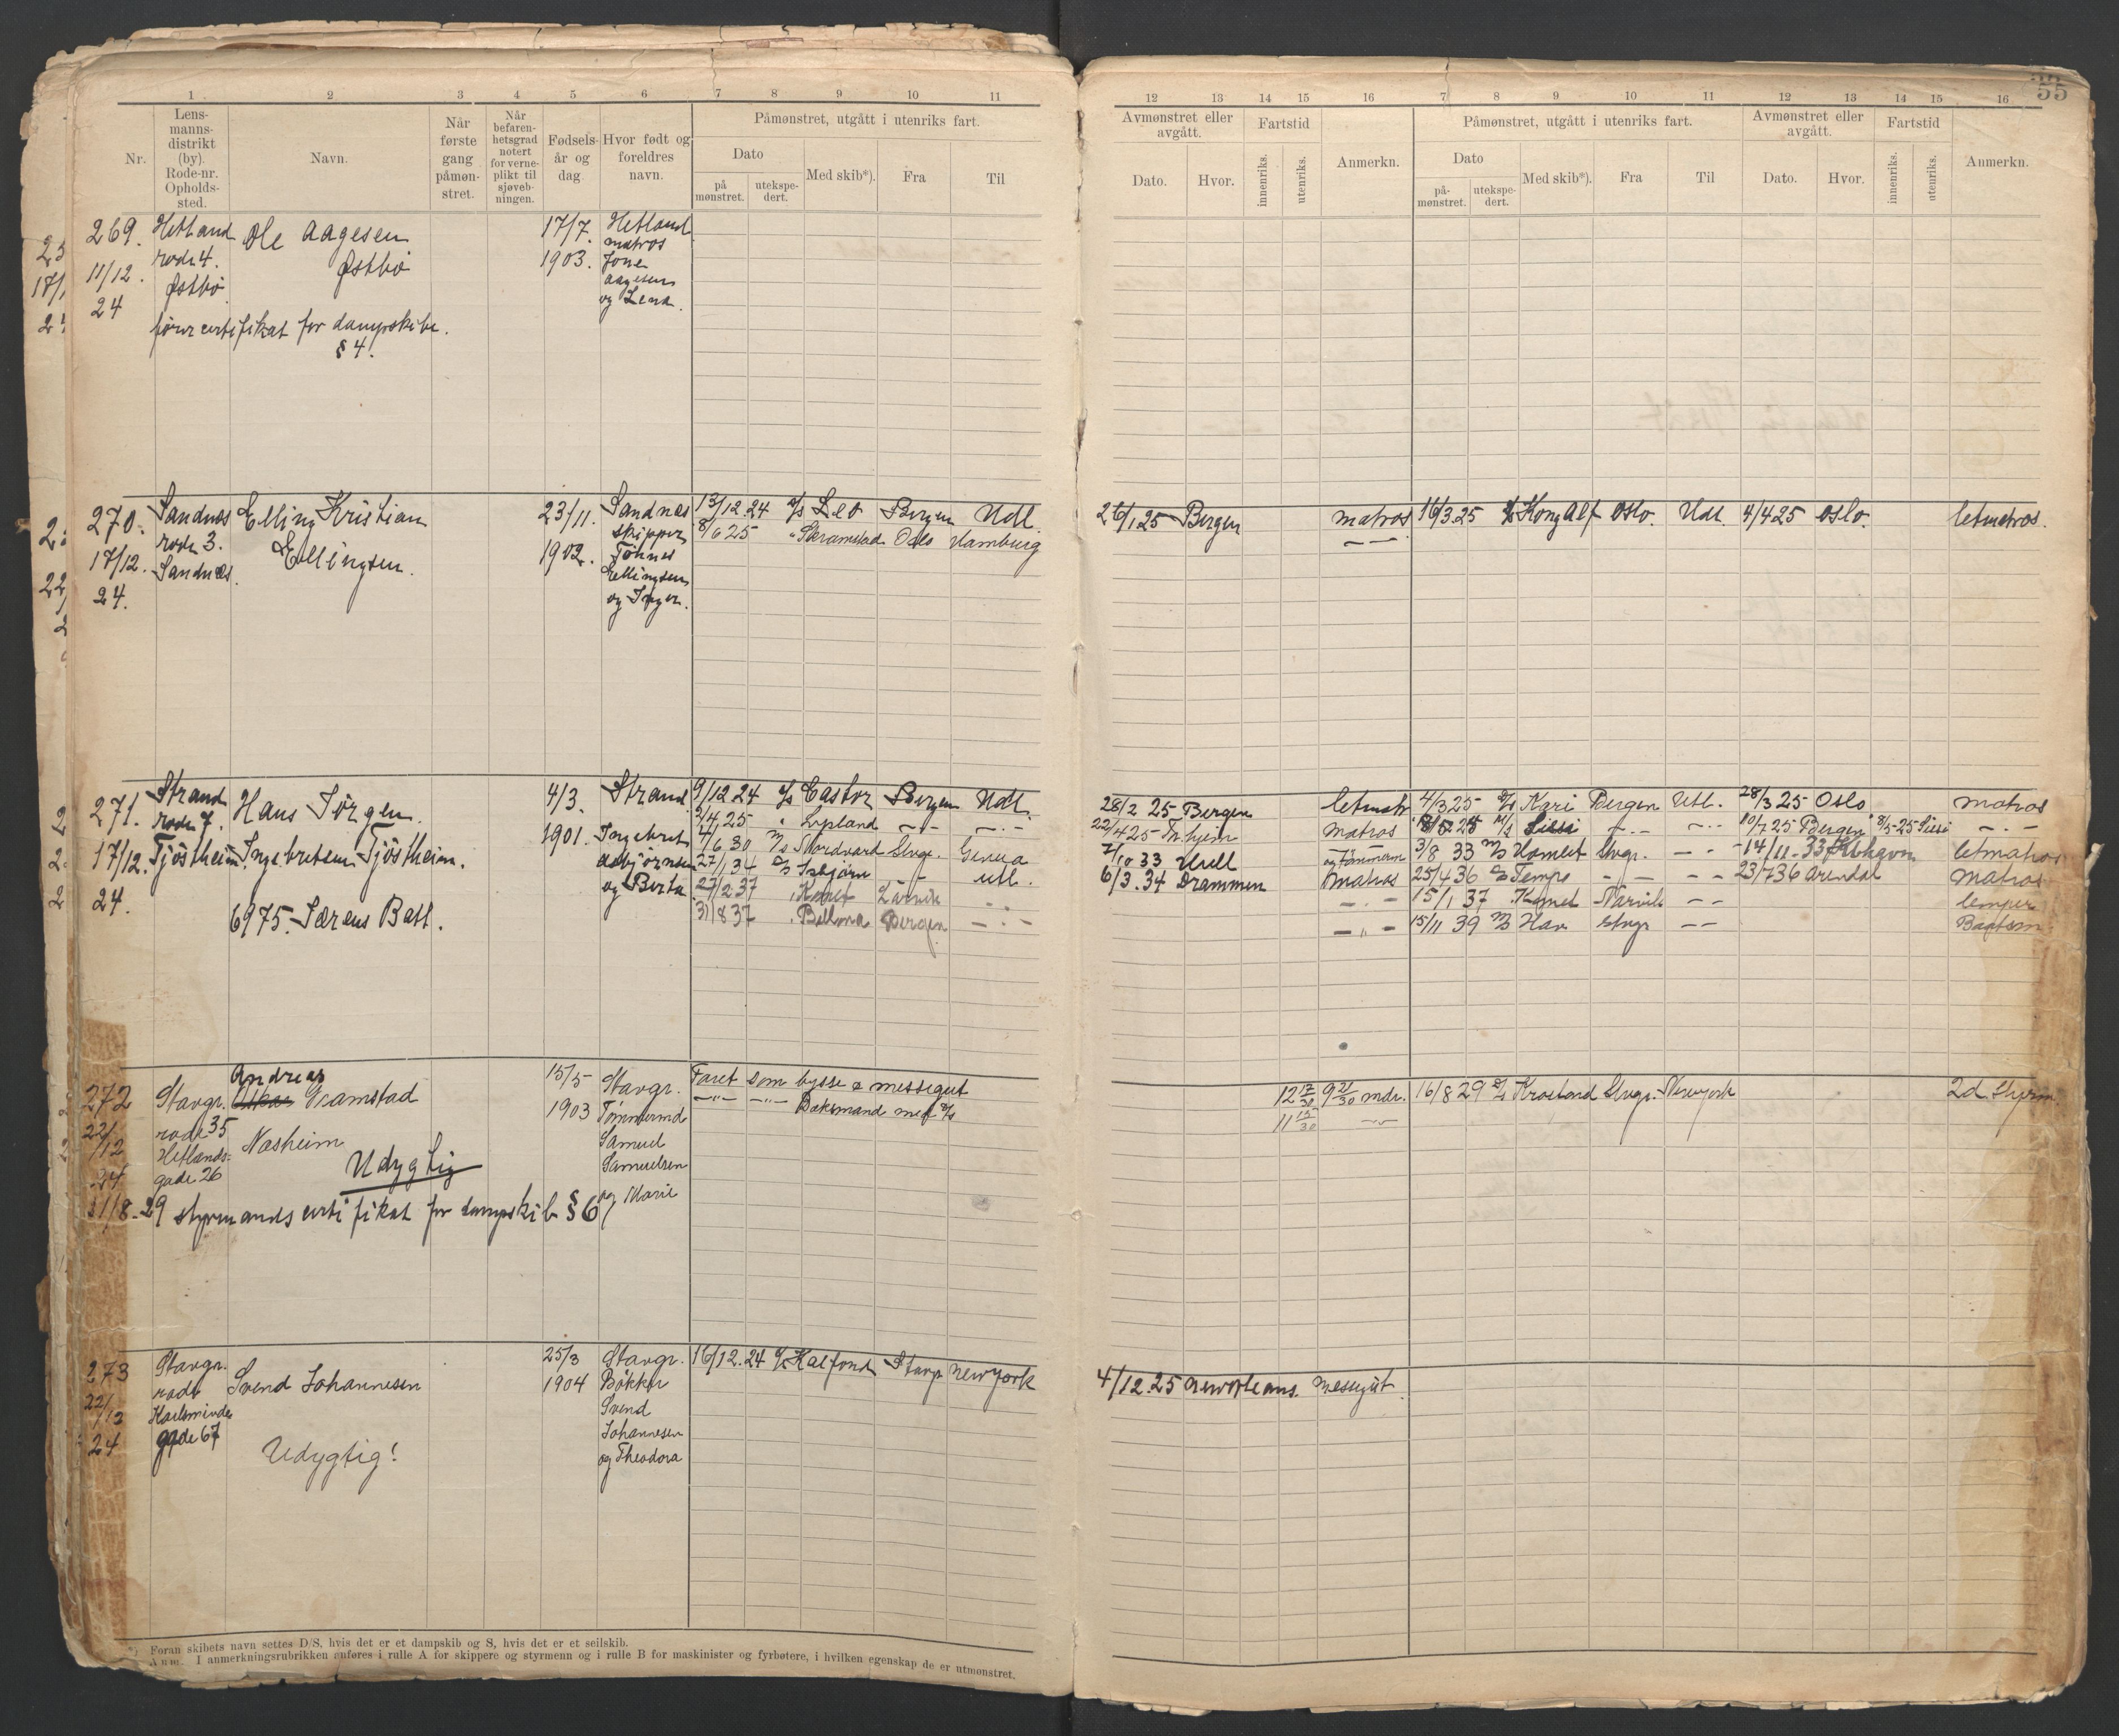 55
1 2 3 4 5 6 7 8 9 10 11
Nr.
Lens-
manns-
distrikt
(by).
Rode-nr.
Opholds-
sted.
Navn.
Når
første
gang
påmøn-
stret.
Når
befaren-
hetsgrad
notert
for verne-
plikt til
sjøveb-
ningen.
Fødsels-
år og
dag.
Hvor født og
foreldres
navn.
Påmønstret, utgått i utenriks fart.
Dato
på
mønstret.
utekspe-
dert.
Med skib*).
Fra
Til
12 13 14 15 16 7 8 9 10 11 12 13 14 15 16
Avmønstret eller
avgått.
Dato.
Hvor.
Fartstid
innenriks.
utenriks.
Anmerkn.
Påmønstret, utgått i utenriks fart.
Dato
på-
mønstret.
utekspe-
dert.
Med skib*).
Fra
Til
Avmønstret eller
avgått.
Dato.
Hvor.
Fartstid
innenriks.
utenriks.
Anmerkn.
269.
11/12.
24
Hetland
rode 4.
Østbø
Ole Aagesen
Østbø
17/7.
1903.
Hetland
matros
Jone
Aagesen
og Lena.
förercertifikat for dampskibe.
§ 4.
270.
17/12.
24.
Sandnes
rode 3.
Sandnes.
Elling Kristian
Ellingsen.
23/11.
1902.
Sandnes
skipper
Tönnes
Ellingsen
og Inger.
13/12.24 d/s Leo Bergen Udl.
8/6 25 " Skramstad Oslo Hamburg
26/1 25 Bergen matros 16/3.25 d/s Kong Alf Oslo. Udl. 4/4 25 Oslo. letmatros.
— " —
271.
17/12.
24.
Strand
rode 7.
Tjöstheim
Hans Jørgen
Ingebretsen Tjöstheim.
6975. Særens Batl.
4/3.
1901.
Strand
Ingebret
Asbjørnsen
og Berta
9/12 24 d/s Castor Bergen Udl.
2/4 25 " Lysland — " — — " —
4/6 30 M/s Nordvard Stvgr. Genua
27/1 34 D/s Isbjørn — " — utl.
27/2 37 " Komet Larvik — " —
31/8 37 " Bellona Bergen — " —
28/2 25 Bergen letmatr 4/3 25 d/s Kari Bergen Utl. 28/3 25 Oslo matros
22/4 25 Tr.hjem matros 18/5 25 M/s Sissi — " — — " — 10/7 25 Bergen 8/5-25 Sissi — " —
7/10 33 Hull og Tömmerm 3/8 33 M/s Hamlet Stvgr. — " — 14/11.33 Kbhavn letmatros
6/3.34 Drammen Matros 25/4 36 D/s Tempo — " — — " — 23/7 36 Arendal Matros
— " — 15/1 37 " Komet Narvik — " — lemper
— " — 15/11 39 M/s Hav Stvgr — " — Baatsm
272
22/12
24
Stavgr.
rode 35
Hetlands-
gade 26
Andreas
Oskar Gramstad
Næsheim
Udygtig
15/5
1903
Stavgr.
Tømmermd
Samuel
Samuelsen
og Marie
Faret som bysse & messegut
— " — — " — Dæksmand med d/s
12 17/30 9 21/30 mdr. 16/8 29 d/s Krosfond Stvgr. Newyork 2d Styrm.
11 15/30 — " —
31/8-29 styrmandscertifikat for dampskib § 6
273
22/12
24
Stavgr.
rode
Karlsminde
gade 67
Svend Johannesen
Udygtig!
25/3
1904
Stavgr.
Bøkker
Svend
Johannesen
og Theodora
16/12.24 d/s Kalfond Stavgr Newyork
4/12.25 Neworleans. Messegut.
*) Foran skibets navn settes D/S, hvis det er et dampskib og S, hvis det er et seilskib.
Anm. I anmerkningsrubrikken anføres i rulle A for skippere og styrmenn og i rulle B for maskinister og fyrbøtere, i hvilken egenskap de er utmønstret.